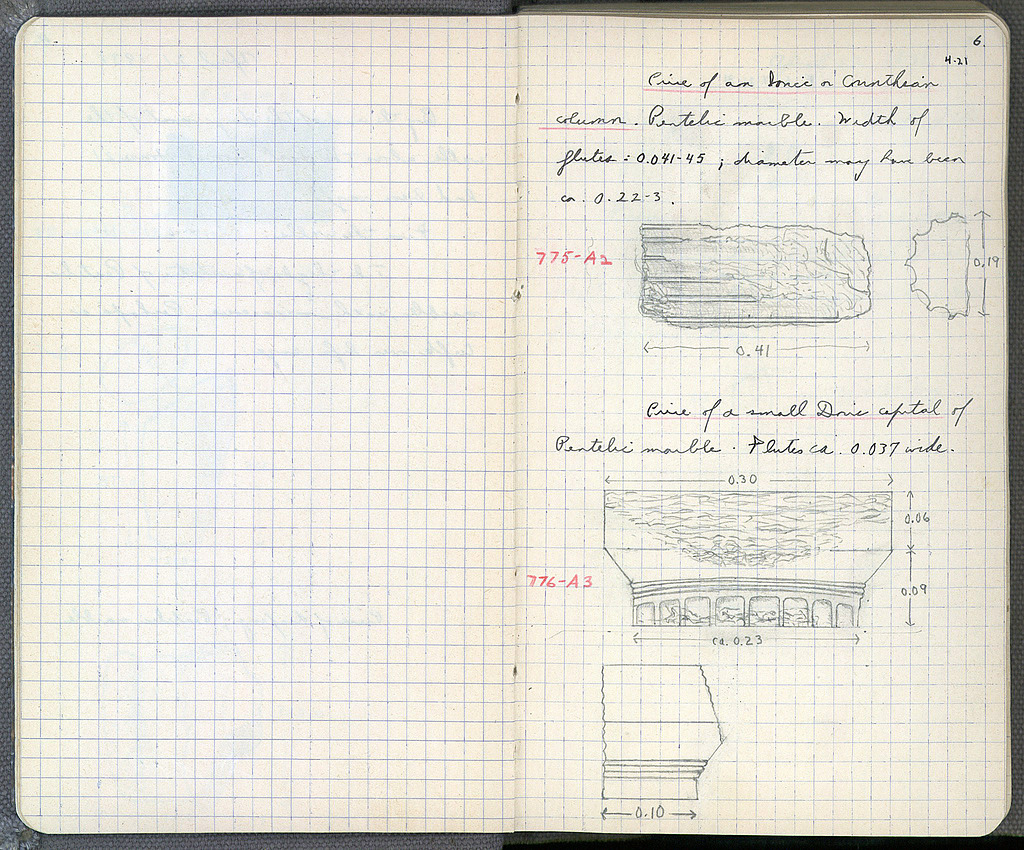 6.
4-21
Piece of an Ionic or Corinthian
column. Pentelic marble. Width of
flutes = 0.041-45 ; diameter may have been
ca. 0.22-3.
775-A2
0.19
0.41
Piece of a small Doric capital of
Pentelic marble. Flutes ca. 0.037 wide.
0.30
0.06
776-A3
0.09
ca. 0.23
0.10